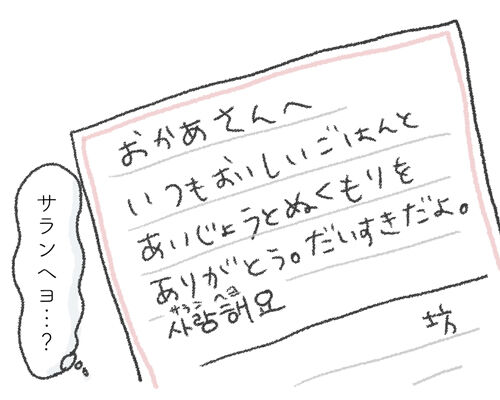 おかあさんへ
いつもおいしいごはんと
あいじょうとぬくもりを
ありがとう。だいすきだよ。
サランヘヨ
사랑해요
坊
サランヘヨ…?